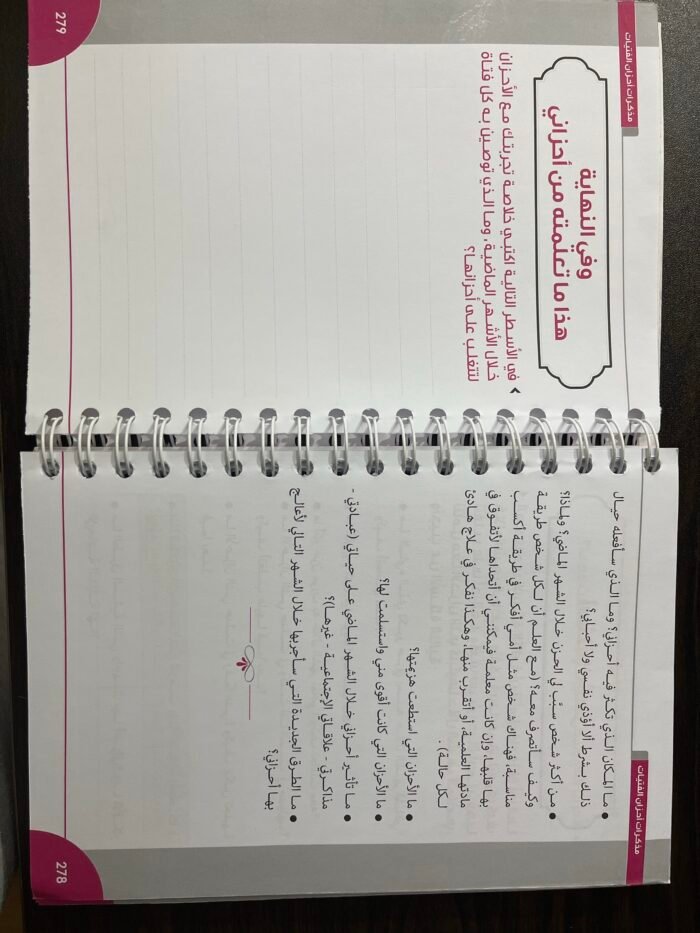 مذكرات أحزان الفتيات
• ما المكان الذي تكثر فيه أحزاني؟ وما الذي سأفعله حيال
ذلك بشرط ألا أؤذي نفسي ولا أحبابي؟
• من أكثر شخص سبَّب لي الحزن خلال الشهر الماضي؟ ولماذا؟
وكيف سأتصرف معه؟ (مع العلم أن لكل شخص طريقة
مناسبة، فهناك شخص مثل أمي أفكر في طريقة أكسب
بها قلبها، وإن كانت معلمة فيمكنني أن أتحداها لأتفوق في
مادتها العلمية، أو أتقرب منها، وهكذا نفكر في علاج هادئ
لكل حالة).
• ما الأحزان التي استطعت هزيمتها؟
• ما الأحزان التي كانت أقوى مني واستسلمت لها؟
• ما تأثير أحزاني خلال الشهر الماضي على حياتي (عبادتي -
مذاكرتي - علاقاتي الإجتماعية - غيرها)؟
• ما الطرق الجديدة التي سأجربها خلال الشهر التالي لأعالج
بها أحزاني؟
278
مذكرات أحزان الفتيات
وفي النهاية
هذا ما تعلمته من أحزاني
في الأسطر التالية اكتبي خلاصة تجربتك مع الأحزان
خلال الأشهر الماضية، وما الذي توصين به كل فتاة
لتتغلب على أحزانها؟
279